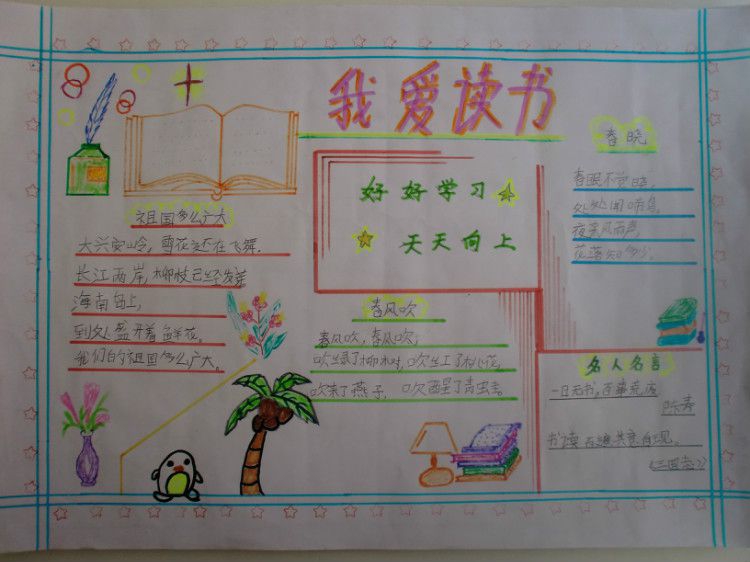 我爱读书
祖国多么广大
大兴安岭，雪花还在飞舞．
长江两岸，柳枝已经发芽
海南岛上，
到处盛开着鲜花。
我们的祖国多么广大。
好好学习
天天向上
春风吹
春风吹，春风吹，
吹绿了柳树，吹红了桃花，
吹来了燕子，吹醒了青虫圭。
春晓
春眠不觉晓，
处处闻啼鸟，
夜来风雨声，
花落知多少，
名人名言
一日无书，百事荒废
陈寿
书读百遍其意自现。
《三国志》